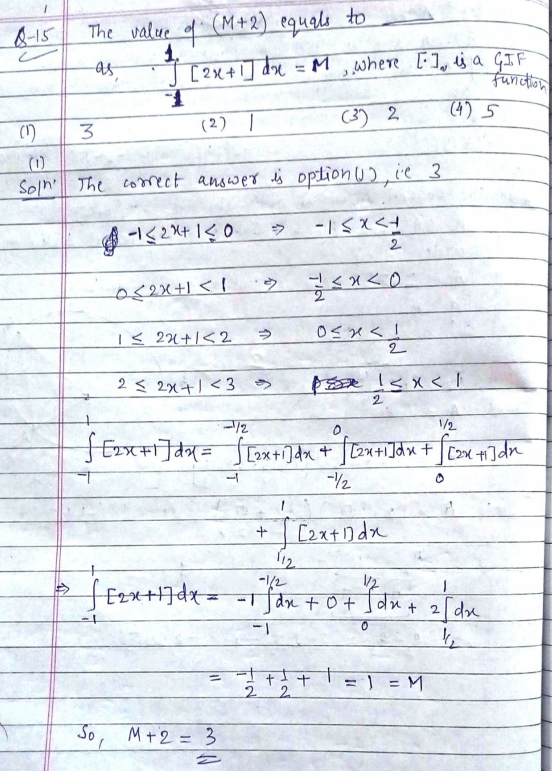 Q-15 The value of (M+2) equals to ____
as, ∫_{-1}^{1} [2x+1] dx = M , where [·], is a GIF
function
(1) 3 (2) 1 (3) 2 (4) 5
(1)
Soln' The correct answer is option (1), i.e 3
-1 ≤ 2x+1 ≤ 0 ⇒ -1 ≤ x < -1/2
0 ≤ 2x+1 < 1 ⇒ -1/2 ≤ x < 0
1 ≤ 2x+1 < 2 ⇒ 0 ≤ x < 1/2
2 ≤ 2x+1 < 3 ⇒ 1/2 ≤ x < 1
∫_{-1}^{1} [2x+1] dx = ∫_{-1}^{-1/2} [2x+1] dx + ∫_{-1/2}^{0} [2x+1] dx + ∫_{0}^{1/2} [2x+1] dx
+ ∫_{1/2}^{1} [2x+1] dx
⇒ ∫_{-1}^{1} [2x+1] dx = -1 ∫_{-1}^{-1/2} dx + 0 + ∫_{0}^{1/2} dx + 2 ∫_{1/2}^{1} dx
= -1/2 + 1/2 + 1 = 1 = M
So, M+2 = 3